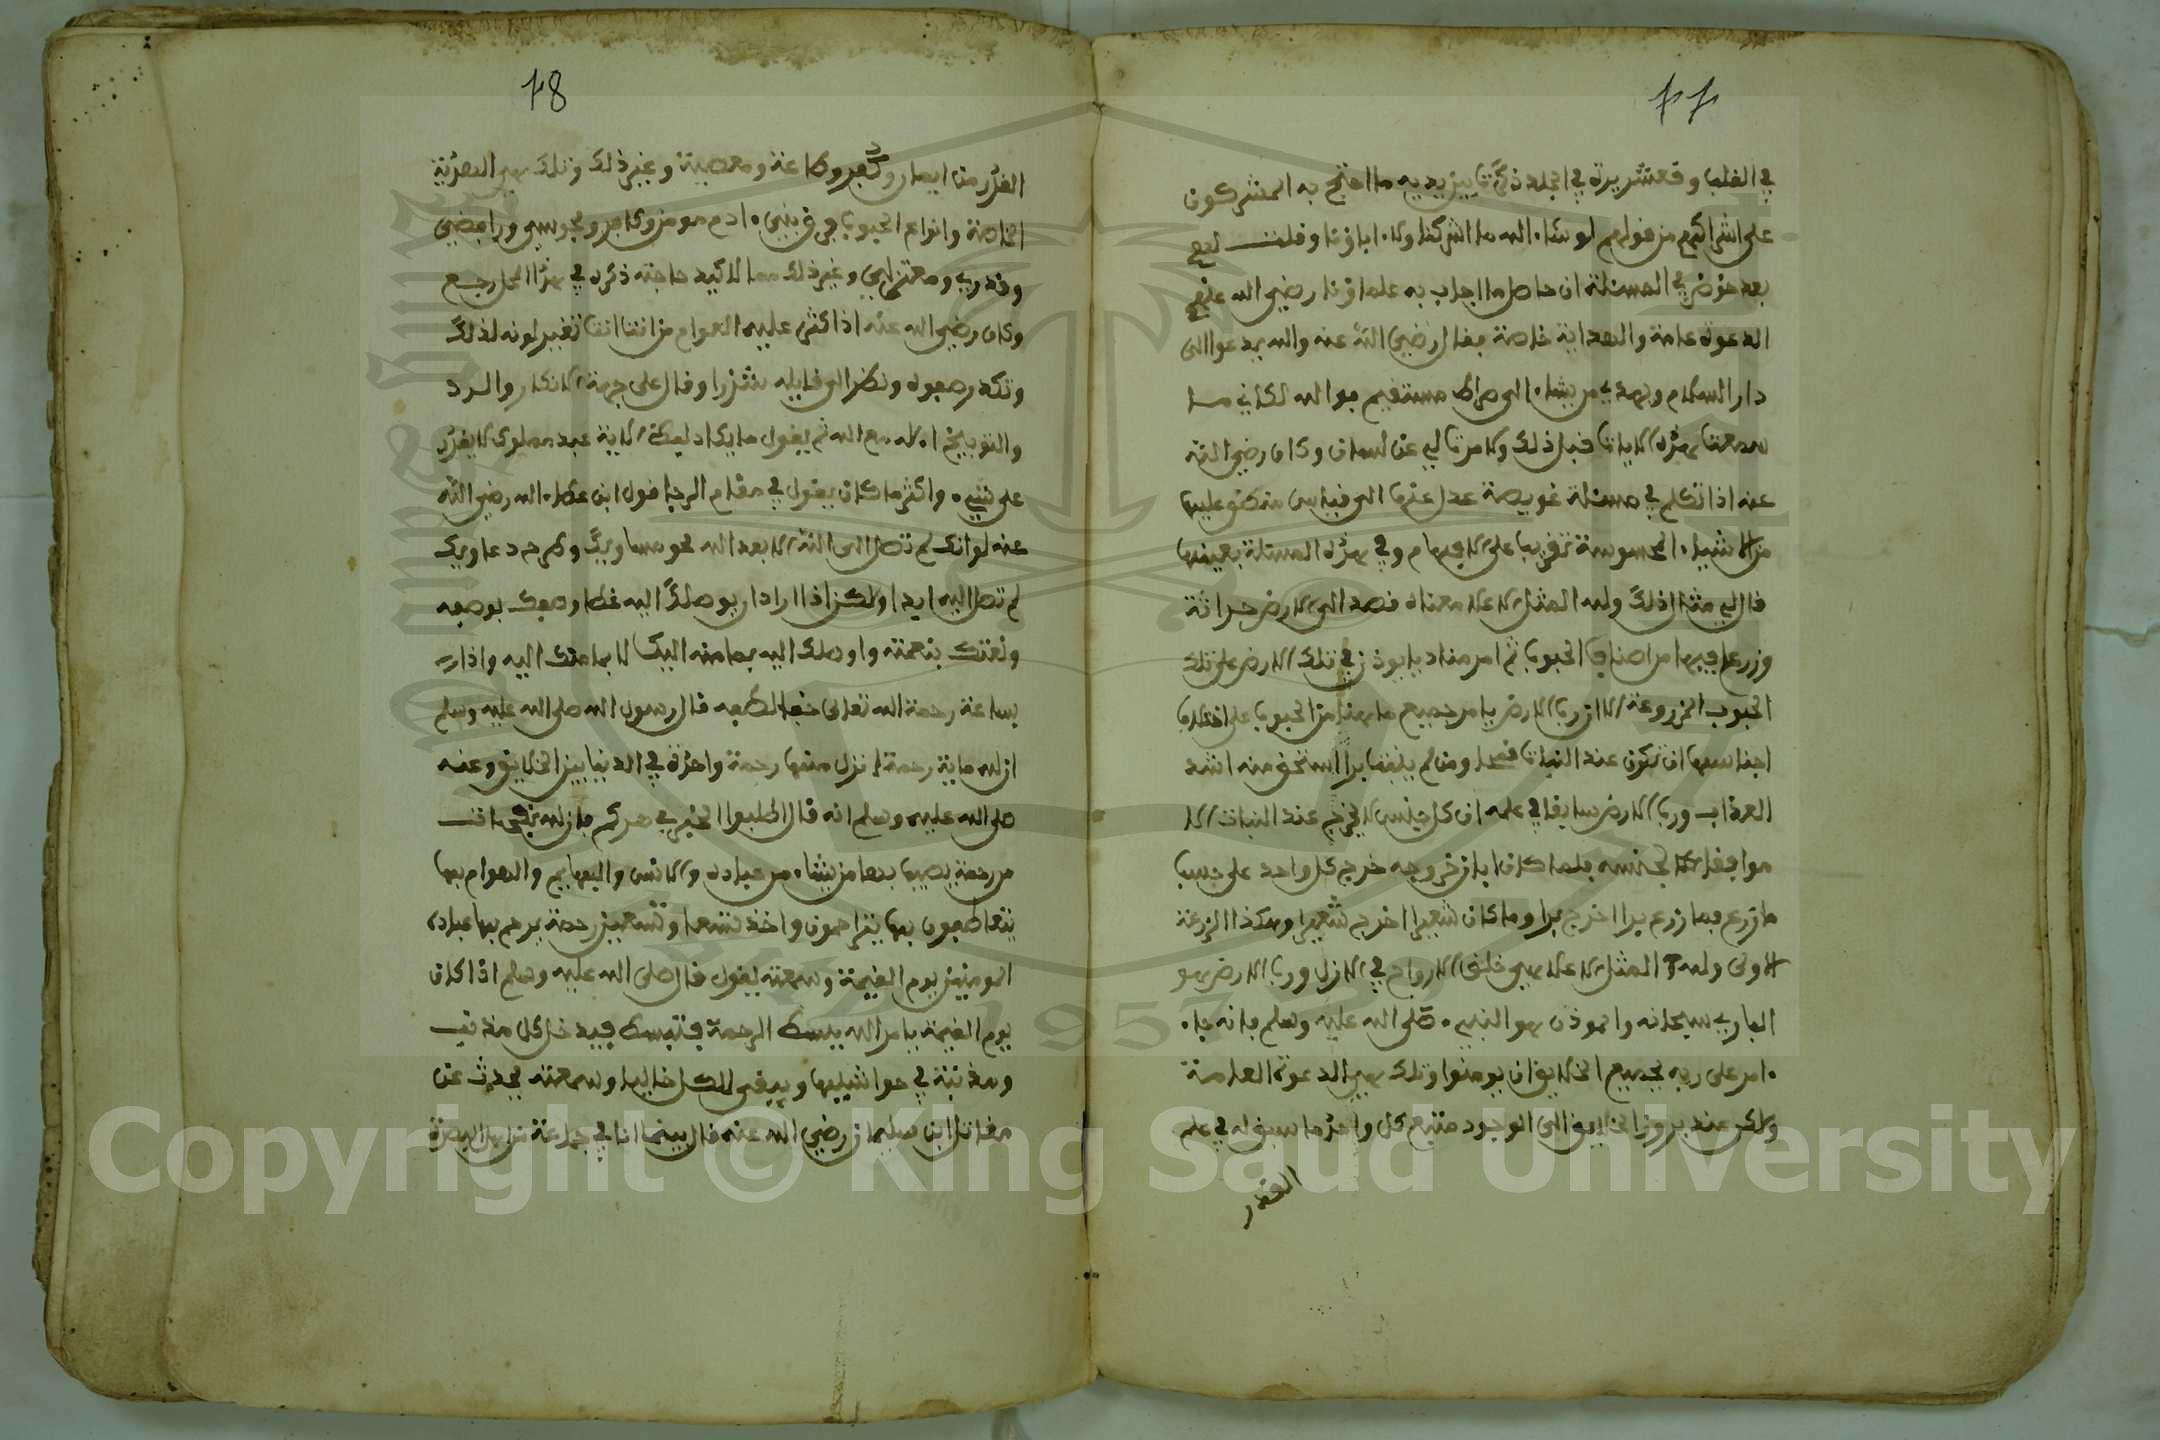 في القلب وقعشريرة في الجلد ذكرت بين يديه ما احتج به المشركون
على اشراكهم من قولهم لو شاء الله ما اشركنا ولا اباؤنا وقلت لهم
بعد خوض في المسئلة ان حاصل ما اجاب به علماؤنا رضي الله عنهم
الدعوة عامة والهداية خاصة فقال رضي الله عنه والله يدعوا الى
دار السلام ويهدي من يشاء الى صراط مستقيم فوالله لكاني ما
سمعت هذه الاية قبل ذلك ولا مرت لي على لسان وكان رضي الله
عنه اذا تكلم في مسئلة عويصة عدل عنها الى قياس متفق عليها
من الاشياء المحسوسة تقريبا على الافهام وفي هذه المسئلة بعينها
قال لي مثال ذلك ولله المثل الاعلا معناه قصد الى الارض حراثة
وزرع فيها من اصناف الحبوب ثم امر مناديا يوذن في تلك الارض على تلك
الحبوب المزروعة الا ان رب الارض يامر جميع ما هنا من الحبوب على اختلاف
اجناسها ان تكون عند النبات قمحا ومن لم ينبت برا استحق منه اشد
العذاب ورب الارض سابقا في علمه ان كل جنس لا يخرج عند النبات الا
موافقا لجنسه فلما كان ابان خروجه خرج كل واحد على حسب
ما زرع فما زرع برا اخرج برا وما كان شعيرا اخرج شعيرا وهكذا الزرعة
الاولى ولله المثل الاعلا هي خلق الارواح في الازل ورب الارض هو
الباري سبحانه والموذن هو النبي صلى الله عليه وسلم فانه جاء
امر على ربه لجميع الخلايق ان يومنوا وتلك هي الدعوة العامة
ولكن عند بروز الخلايق الى الوجود متبع كل واحد ما سبق له في علم
القدر
78
القدر من ايمان وكفر وطاعة ومعصية وغير ذلك وتلك هي الهداية
الخاصة وانواع الحبوب هي في بني ادم مومن وكافر ومجوسي ورافضي
وقدري ومعتزلي وغير ذلك مما لا كبيد حاجة ذكره في هذا المحل رجع
وكان رضي الله عنه اذا كثر عليه العوام من انت انت تغير لونه لذلك
وتكدر صفوه ونظر الى قايله شزرا وقال على جهة الانكار والرد
والتوبيخ اءله مع الله ثم يقول ما يكاد ليعكم الاية عبد مملوك لا يقدر
على شيء واكثر ما كان يقول في مقام الرجا قول ابن عطاء الله رضي الله
عنه لو انك لم تصل الى الله الا بعد الله محو مساويك ومحو دعاويك
لم تصل اليه ابدا ولكن اذا اراد ان يوصلك اليه غطا وصفك بوصفه
ونعتك بنعته واوصلك اليه بما منه اليك لا بما منك اليه واذا رء
بساعة رحمة الله تعالى خفي لطفه قال رسول الله صلى الله عليه وسلم
ان لله ماية رحمة انزل منها رحمة واحدة في الدنيا بين الخلايق وعنه
صلى الله عليه وسلم انه قال اطلبوا الخير في دهركم فان لله نفحات
من رحمة يصيب بها من يشاء من عباده والانس والبهايم والهوام بها
يتعاطفون بها يتراحمون واخذ تسعا وتسعين رحمة يرحم بها عباده
المومنين يوم القيمة وسمعته يقول قال صلى الله عليه وسلم اذا كان
يوم القيمة يامر الله ببسط الرحمة فتبسط فيدخل كل مذنب
ومذنبة في حواشيها ويبقى الكل خاليا وسمعته يحدث عن
مقاتل ابن سليمان رضي الله عنه قال بينما انا في جماعة من اهل البصرة
Copyright © King Saud University
1957